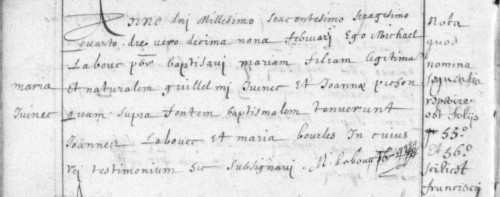 Anno dni Millesimo Sexcentesimo Sexagesimo
quarto die vero decima nona februarj Ego Michael
Labouc pbr baptisavi mariam filiam legitimam
et naturalem guillelmi Juinec et Joannæ pichon
quam supra fontem baptismalem tenuerunt
Joannes Labouc et maria bourles In cuius
rej testimonium sic subsignavi. M. Labouc pbr
maria
Juinec
Nota
quod
nomina
sequentia
est foliis
55º
Et 56º
scilicet
francisci